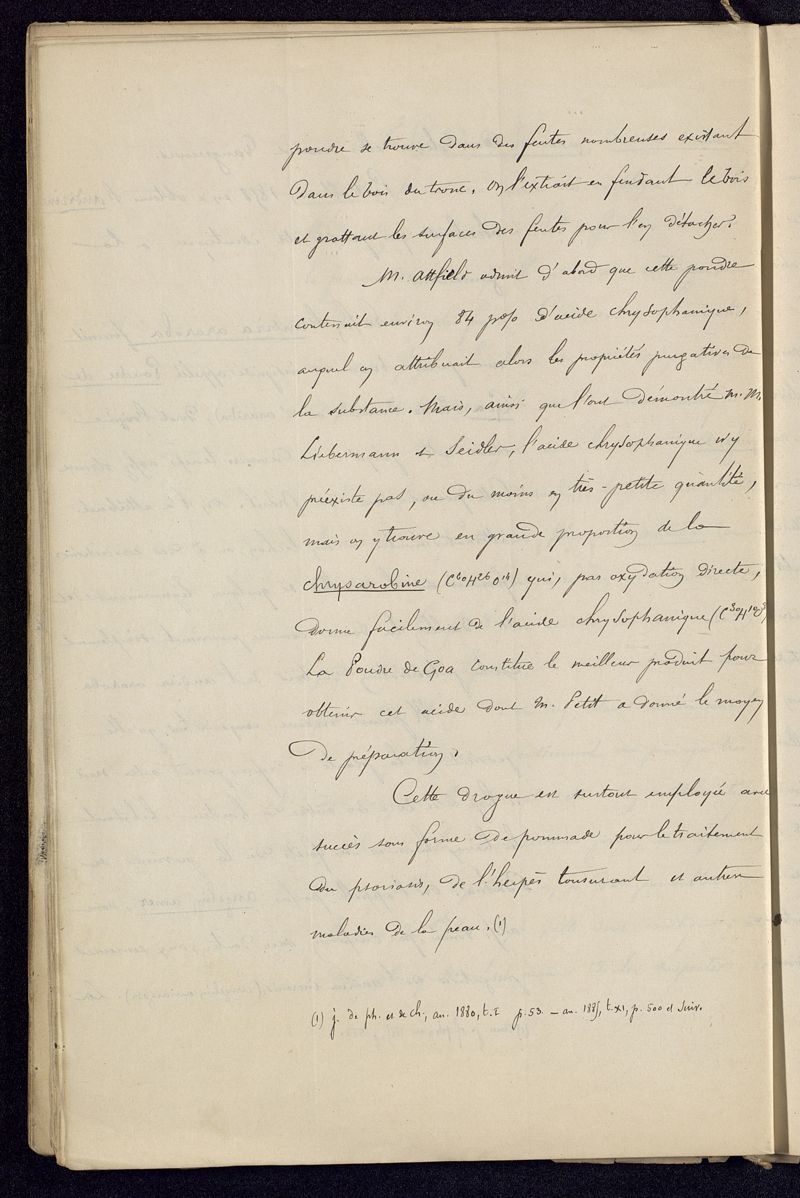 poudre se trouve dans des fentes nombreuses existant
dans le bois du tronc. on l'extrait en fendant le bois
et grattant les surfaces des fentes pour l'en détacher.
M. Attfield admit d'abord que cette poudre
contenait environ 84 p% d'acide chrysophanique,
auquel on attribuait alors les propriétés purgatives de
la substance. Mais, ainsi que l'ont démontré M. M.
Liebermann et Seidler, l'acide chrysophanique n'y
préexiste pas, ou du moins en très-petite quantité,
mais on y trouve en grande proportion de la
chrysarobine (C60H26O14) qui, par oxydation directe,
donne facilement de l'acide chrysophanique (C30H10O8)
La Poudre de Goa constitue le meilleur produit pour
obtenir cet acide dont M. Petit a donné le moyen
de préparation.
Cette drogue est surtout employée avec
succès sous forme de pommade pour le traitement
du psoriasis, de l'herpès tonsurant et autres
maladies de la peau. (1)
(1) J. de ph. et de ch., an. 1880, t. p. 53. – an. 1885, t. XI, p. 500 et suiv.